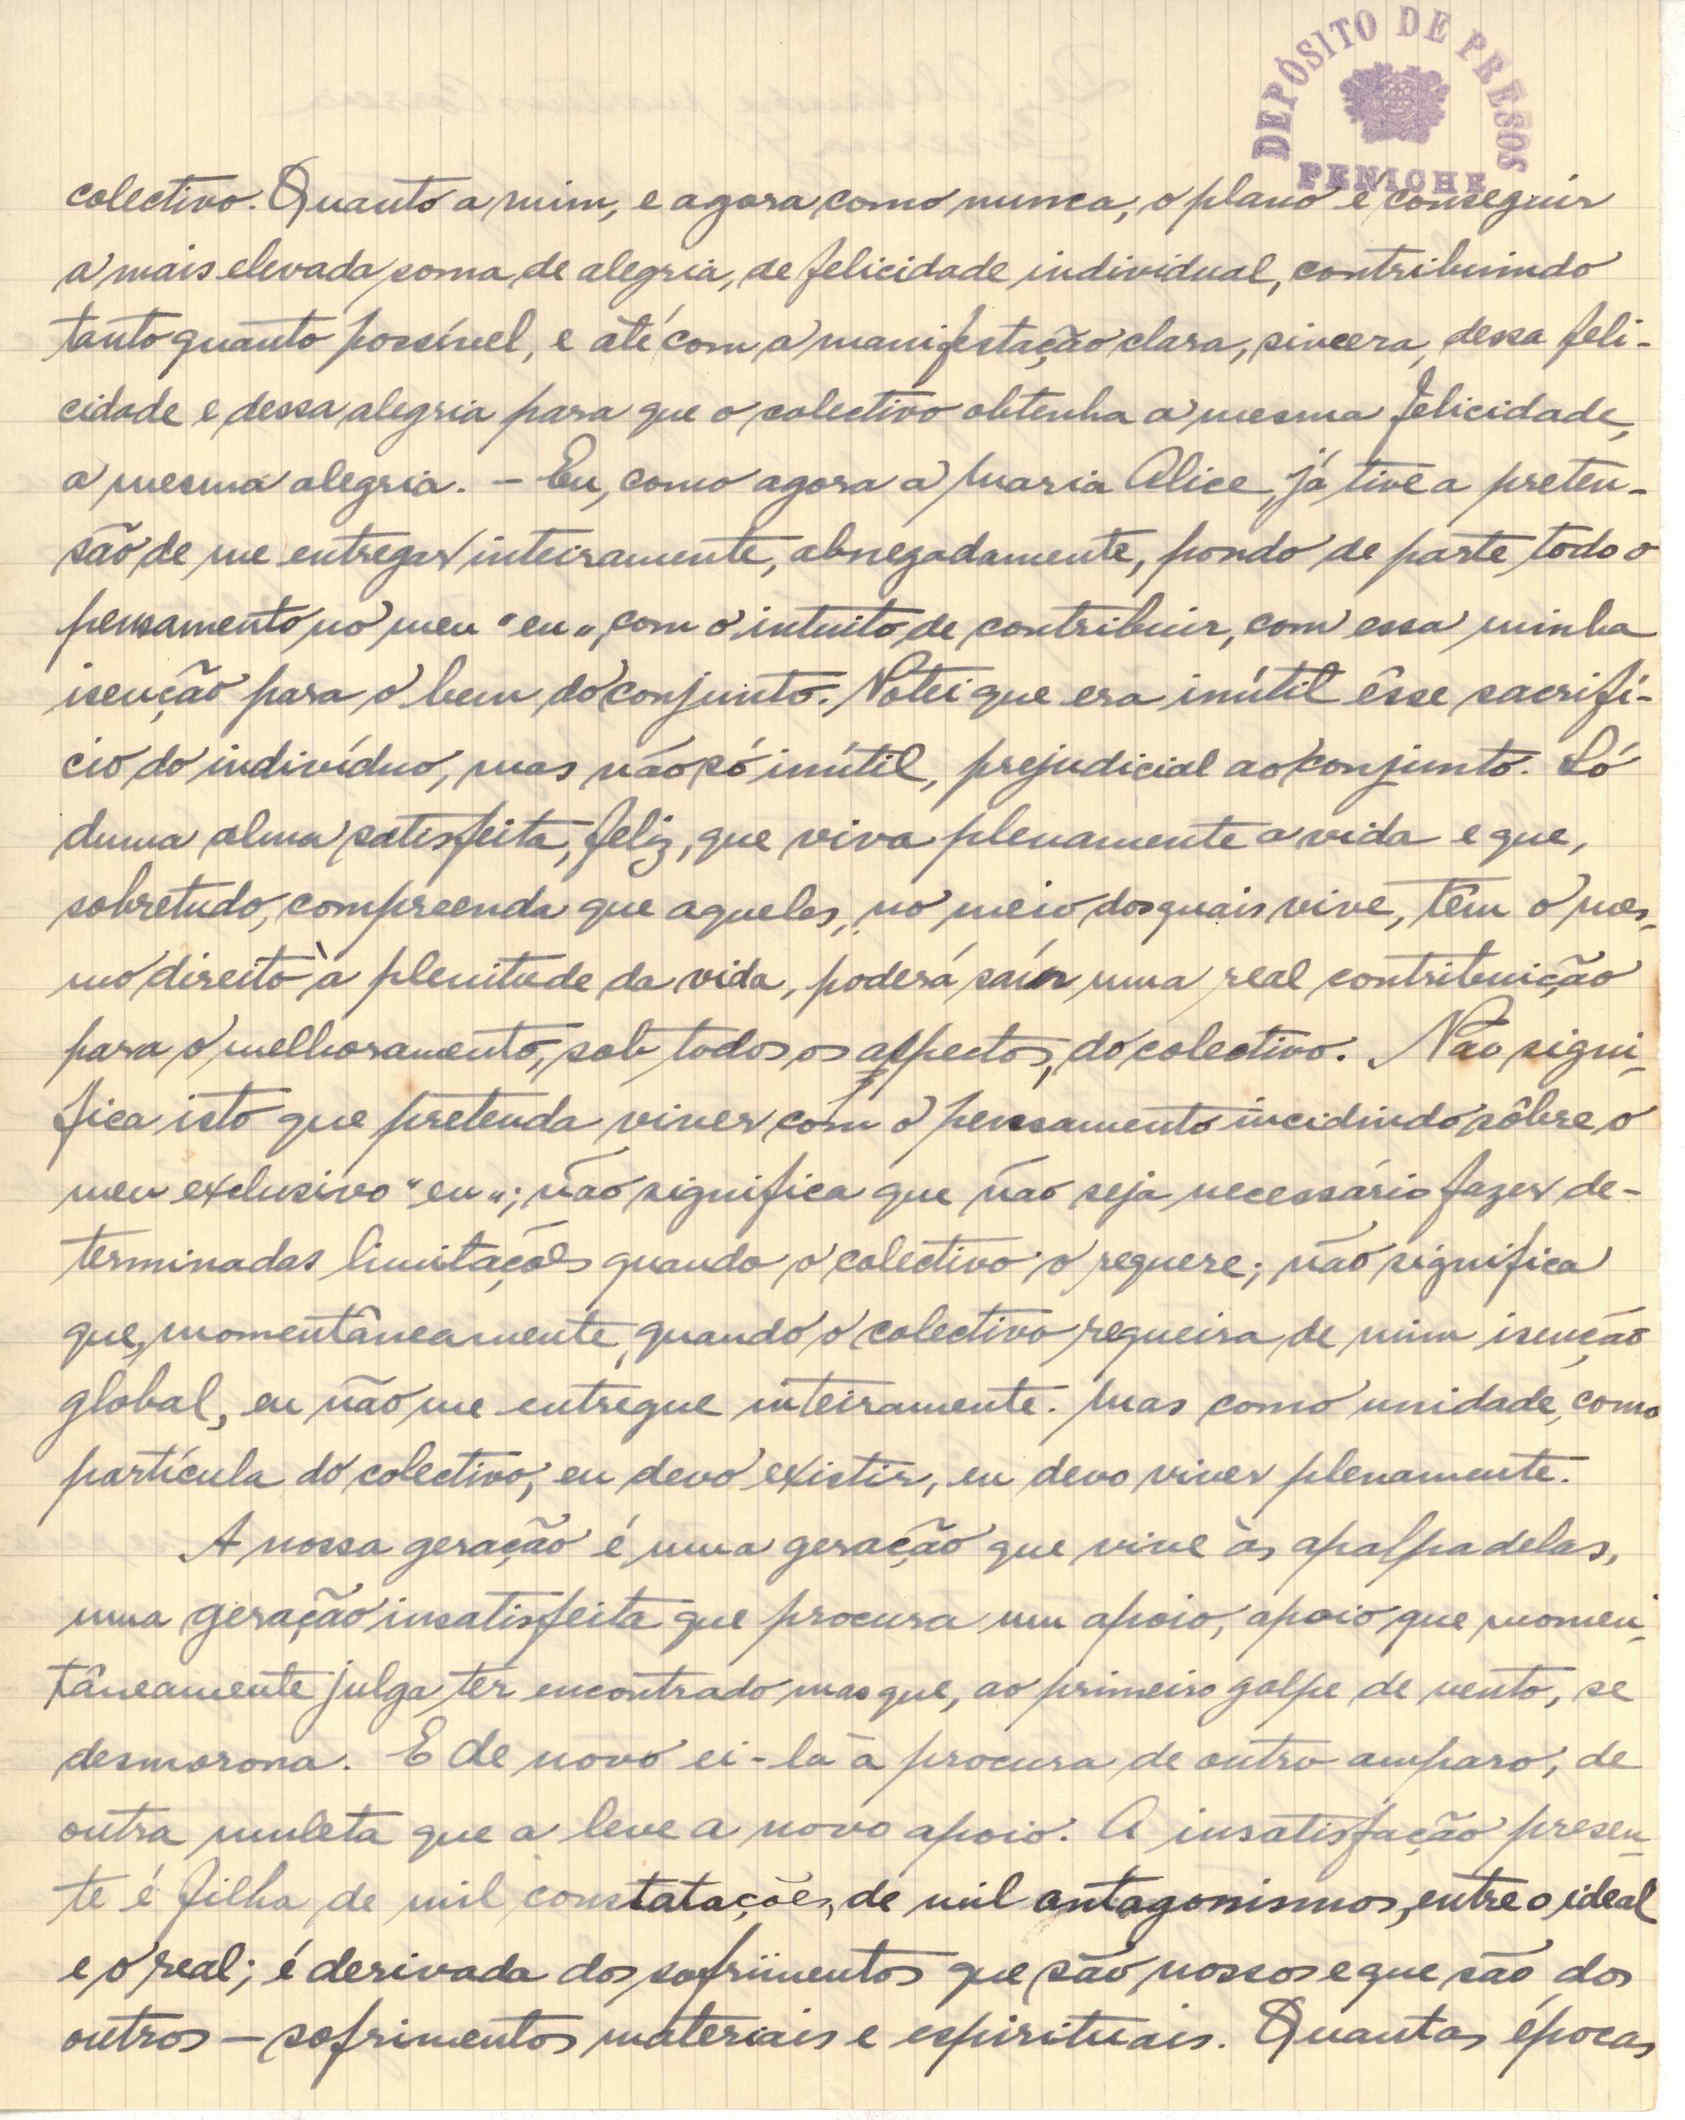 DEPÓSITO DE PRESOS
PENICHE
colectivo. Quanto a mim, e agora como nunca, o plano é conseguir
a mais elevada soma de alegria, de felicidade individual, contribuindo
tanto quanto possível, e até com a manifestação clara, sincera, dessa feli-
cidade e dessa alegria para que o colectivo obtenha a mesma felicidade,
a mesma alegria. - Eu, como agora a Maria Alice, já tive a preten-
são de me entregar inteiramente, abnegadamente, pondo de parte todo o
pensamento no meu "eu" com o intuito de contribuir, com essa minha
isenção para o bem do conjunto. Notei que era inútil êsse sacrifí-
cio do indivíduo, mas não só inútil, prejudicial ao conjunto. Só
duma alma satisfeita, feliz, que viva plenamente a vida e que,
sobretudo, compreenda que aqueles, no meio dos quais vive, têm o mes-
mo direito à plenitude da vida, poderá saír uma real contribuição
para o melhoramento, sob todos os aspectos, do colectivo. Não signi-
fica isto que pretenda viver com o pensamento incidindo sôbre o
meu exclusivo "eu"; não significa que não seja necessário fazer de-
terminadas limitações quando o colectivo o requere; não significa
que, momentâneamente, quando o colectivo requeira de mim isenção
global, eu não me entregue inteiramente. Mas como unidade, como
partícula do colectivo, eu devo existir, eu devo viver plenamente.
A nossa geração é uma geração que vive às apalpadelas,
uma geração insatisfeita que procura um apoio, apoio que momen-
tâneamente julga ter encontrado mas que, ao primeiro golpe de vento, se
desmorona. E de novo ei-la à procura de outro amparo, de
outra muleta que a leve a novo apoio. A insatisfação presen-
te é filha de mil constatações, de mil antagonismos, entre o ideal
e o real; é derivada dos sofrimentos que são nossos e que são dos
outros - sofrimentos materiais e espirituais. Quantas épocas